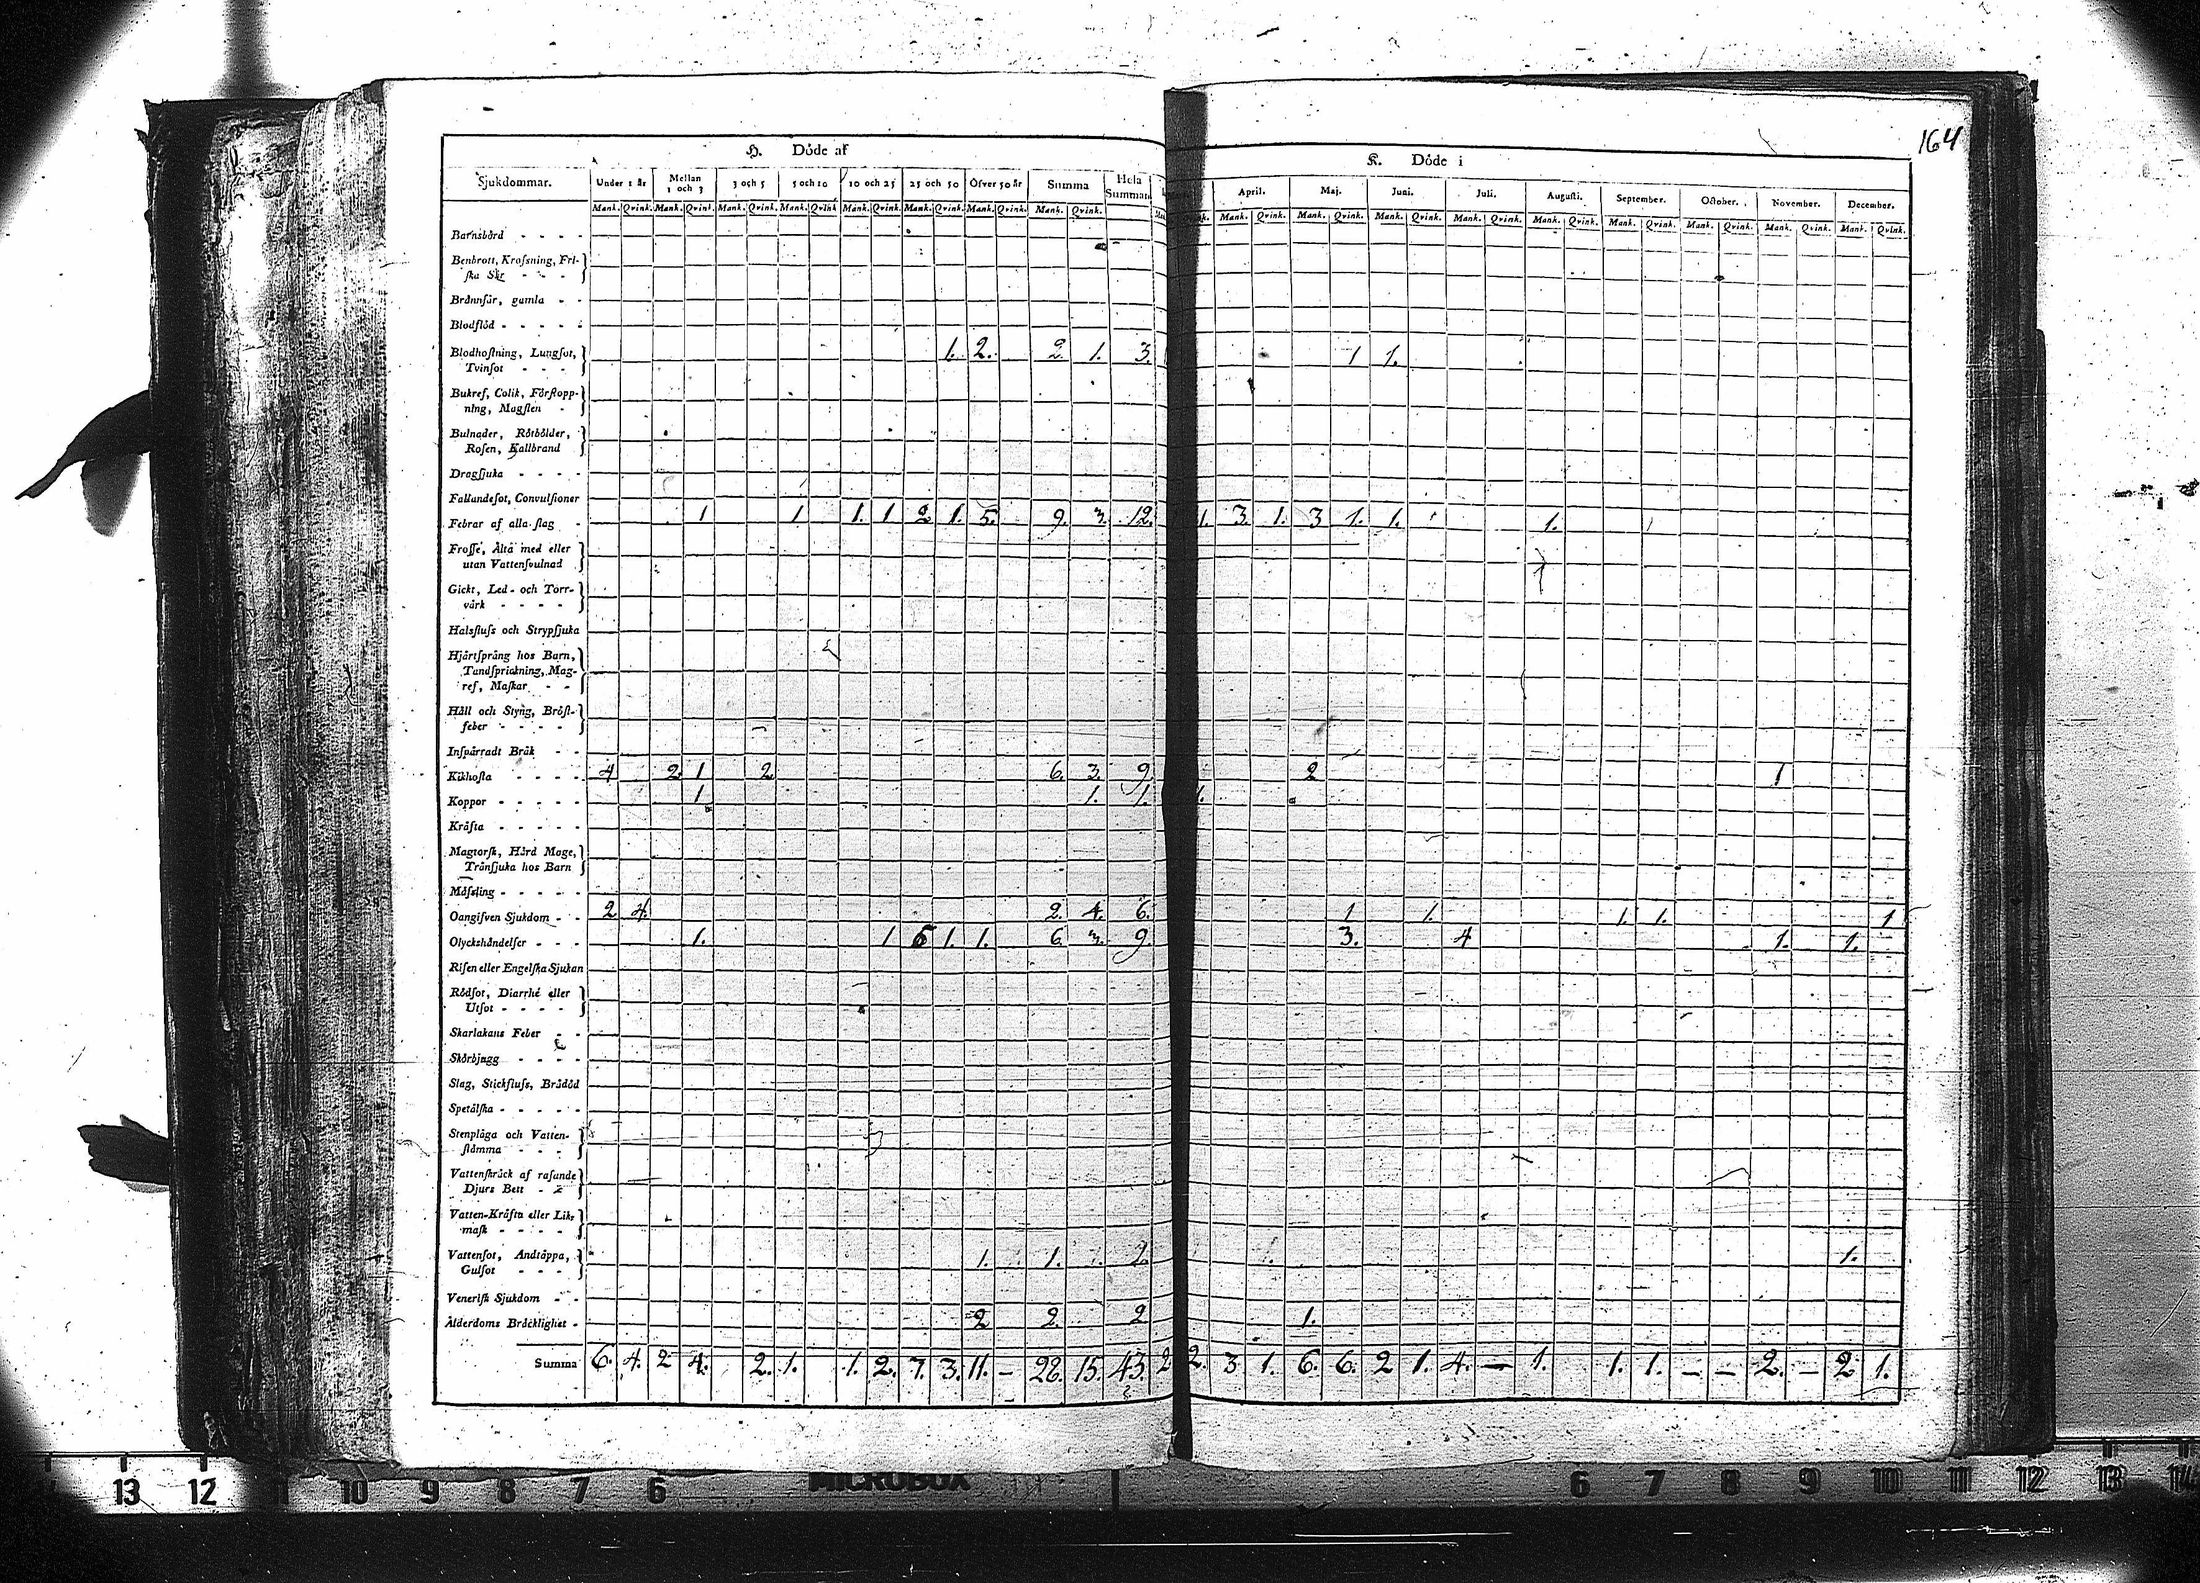 164
H. Döde af
K. Döde i
Sjukdommar. Under 1 år Mellan 1 och 3 3 och 5 5 och 10 10 och 25 25 och 50 Öfver 50 år Summa Hela Summan April. Maj. Juni. Juli. Augusti. September. October. November. December.
Mank. Qvink. Mank. Qvink. Mank. Qvink. Mank. Qvink. Mank. Qvink. Mank. Qvink. Mank. Qvink. Mank. Qvink. Mank. Qvink. Mank. Qvink. Mank. Qvink. Mank. Qvink. Mank. Qvink. Mank. Qvink. Mank. Qvink. Mank. Qvink. Mank. Qvink.
Barnsbörd - - - -
Benbrott, Krosſning, Fri-
ſka Sår - - -
Brånnſår, gamla - -
Blodflöd - - - - -
Blodhoſtning, Lungſot,
Tvinſot - - - 1. 2. 2. 1. 3. 1 1.
Bukref, Colik, Förſtopp-
ning, Magſten -
Bulnader, Rötbölder,
Roſen, Kallbrand
Dragſjuka - - - -
Fallandeſot, Convulſioner
Febrar af alla ſlag - 1 1 1. 1 2 1. 5. 9. 3. 12. 1. 3. 1. 3 1. 1. 1.
Froſſe, Älta med eller
utan Vattenſvulnad
Gickt, Led- och Torr-
värk - - - -
Halsfluſs och Strypſjuka
Hjärtſprång hos Barn,
Tandſprickning, Mag-
ref, Maſkar - -
Håll och Styng, Bröſt-
feber - - - -
Inſpärradt Bråk - -
Kikhoſta - - - - 4 2 1 2 6. 3. 9. 2 1
Koppor - - - - - 1 1. 1. 1.
Kräfta - - - - -
Magtorſk, Hård Mage,
Tränſjuka hos Barn
Mäſsling - - - - -
Oangifven Sjukdom - - 2 4. 2. 4. 6. 1 1. 1. 1. 1
Olyckshändelſer - - - 1. 1 5 1. 1. 6. 3. 9. 3. 4 1. 1.
Riſen eller Engelſka Sjukan
Rödſot, Diarrhé eller
Utſot - - - -
Skarlakans Feber - -
Skörbjugg - - - -
Slag, Stickfluſs, Brådöd
Spetälſka - - - - -
Stenplåga och Vatten-
ſtämma - - -
Vattenſkräck af raſande
Djurs Bett - -
Vatten-Kräfta eller Lik-
maſk - - - -
Vattenſot, Andtäppa,
Gulſot - - - 1. 1. 2. 1.
Veneriſk Sjukdom - -
Ålderdoms Bräcklighet - 2 2. 2 1.
Summa 6. 4. 2 4. 2. 1. 1. 2. 7. 3. 11. - 28. 15. 43. 2 2. 3. 1. 6. 6. 2 1. 4. - 1. 1. 1. - - 2. - 2 1.
13 12 11 10 9 8 7 6 MICROBOX 6 7 8 9 10 11 12 13 14